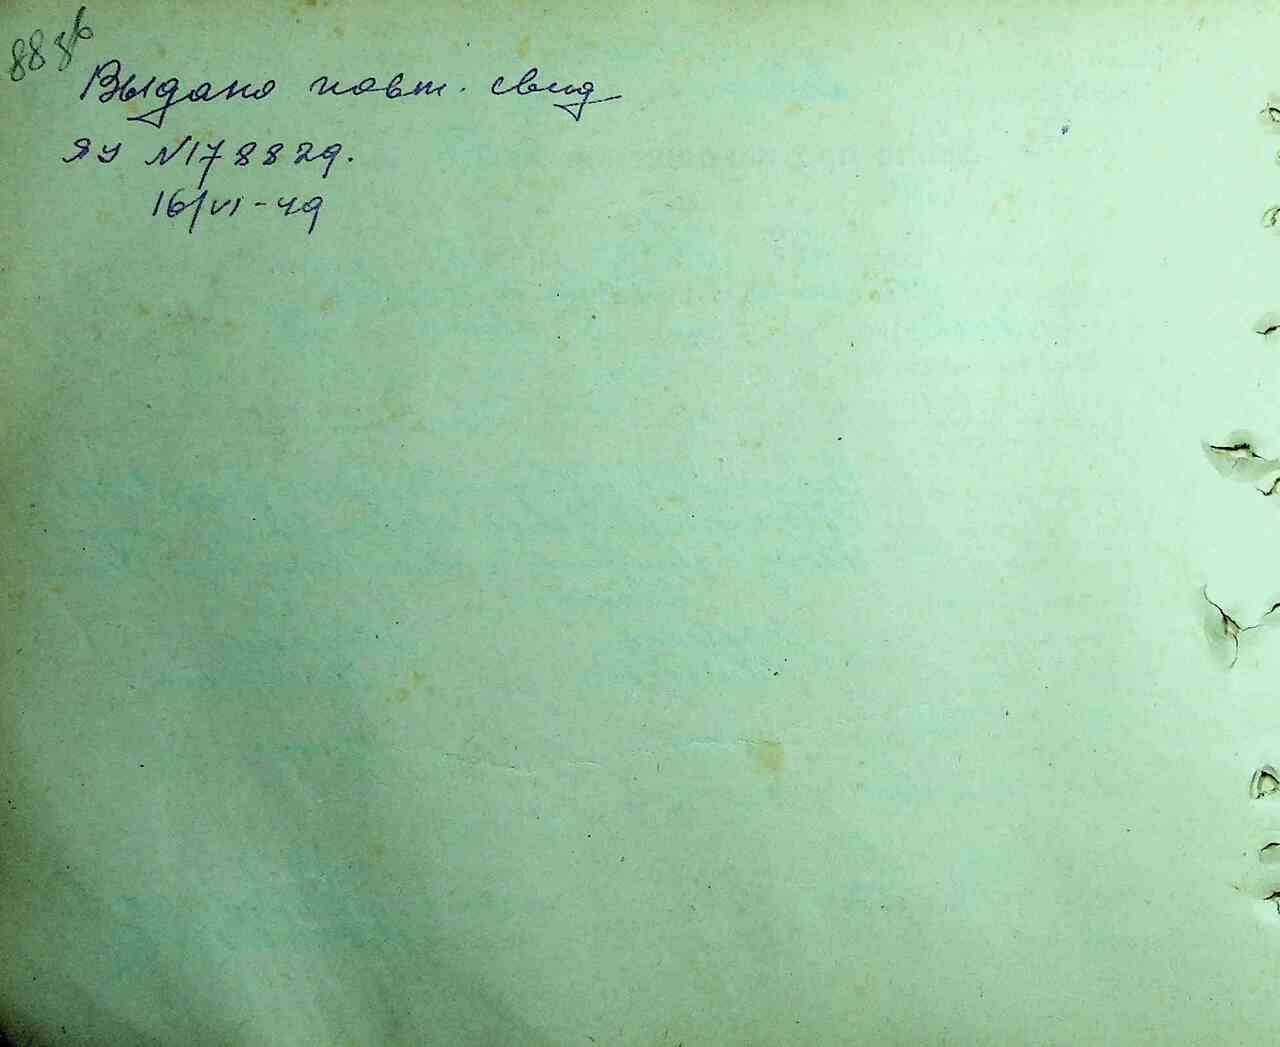 88 об
Выдано повт. свид
ЯУ №178829.
16/VI-49